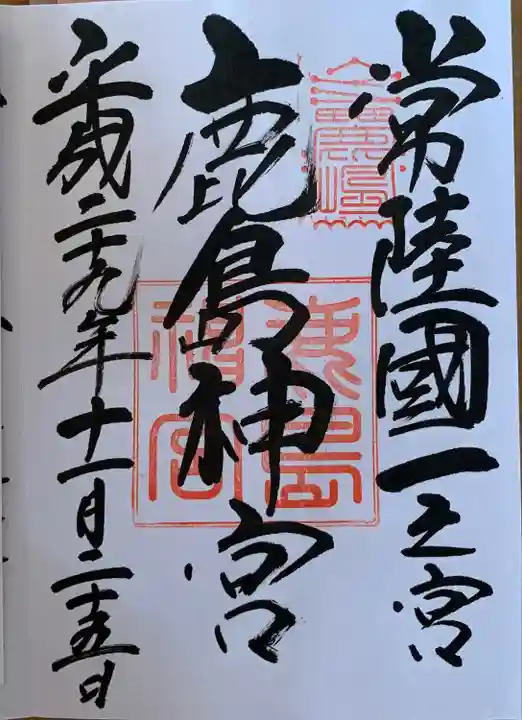 常陸國一之宮
鹿島神宮
平成二十九年十一月二十五日
鹿島
神宮